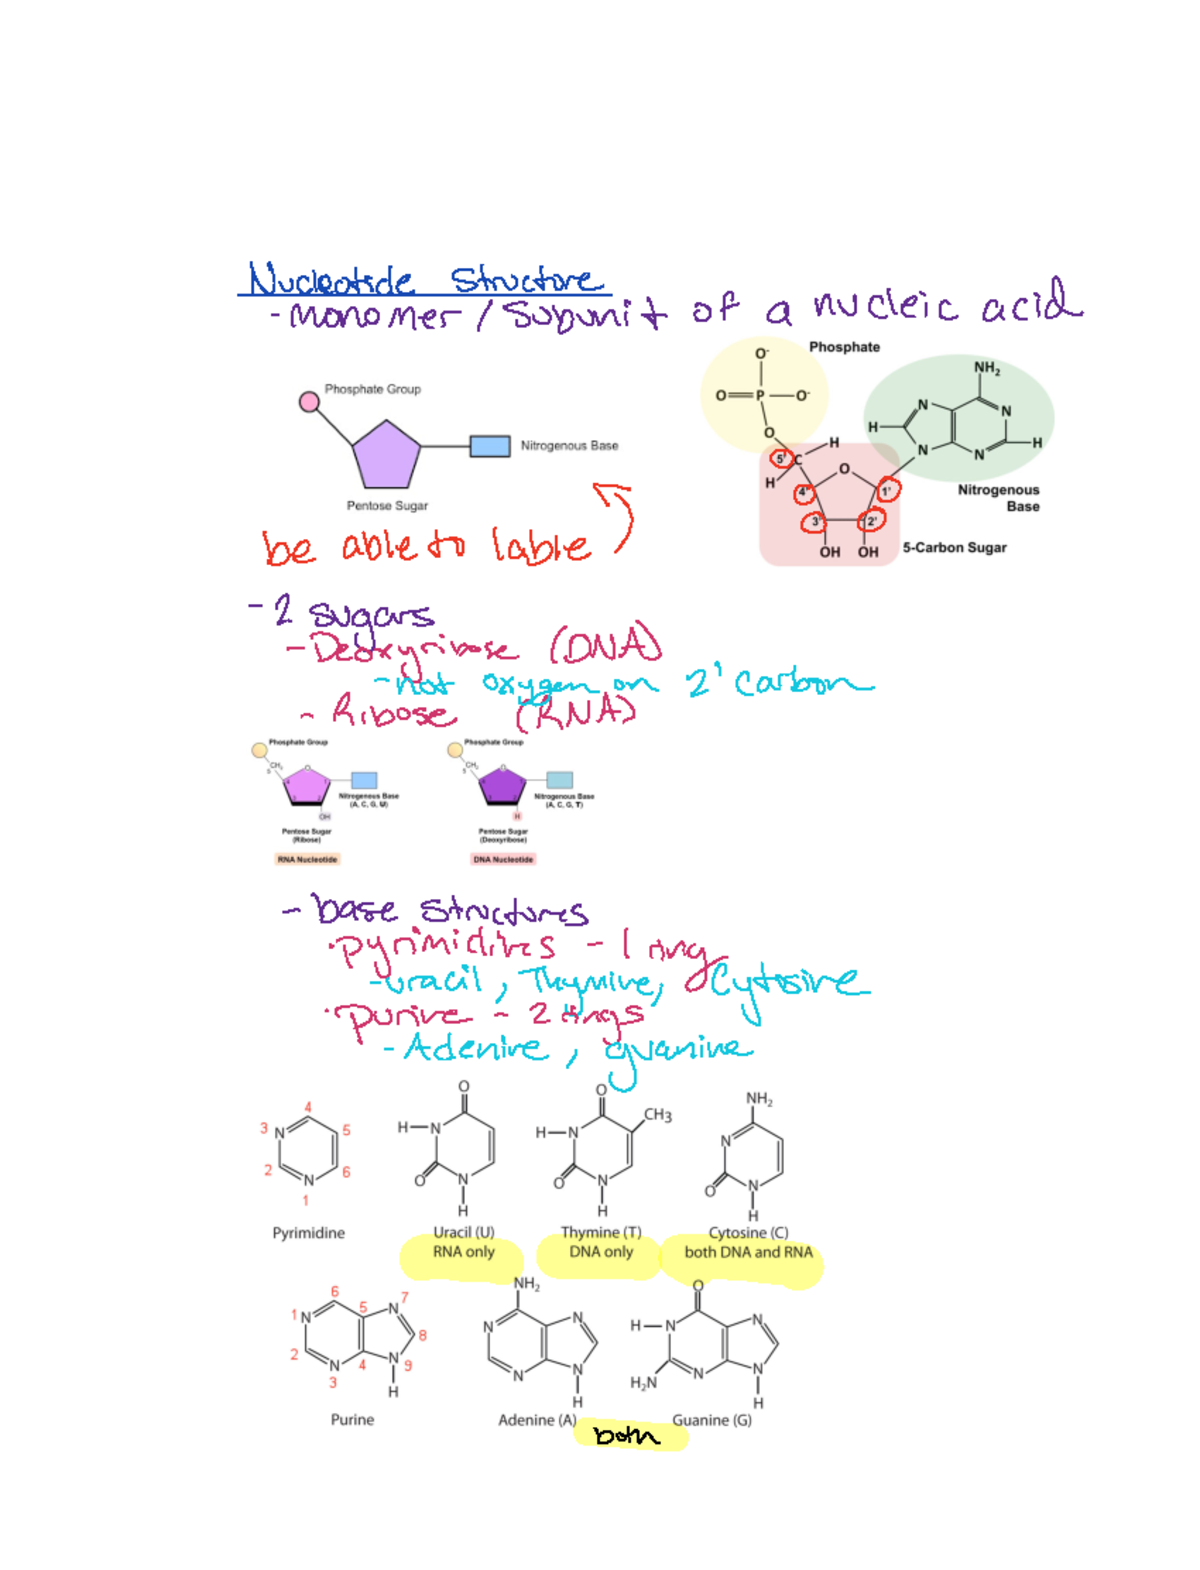 Nucleotide Structure
- monomer / Subunit of a nucleic acid
Phosphate Group
Nitrogenous Base
Pentose Sugar
be able to lable
O⁻
Phosphate
O=P—O⁻
O
NH₂
N
N
H
H
N
N
5' C
H
H
O
4'
1'
3'
2'
OH OH
Nitrogenous
Base
5-Carbon Sugar
- 2 sugars
- Deoxyribose (DNA)
- not oxygen on 2' carbon
- Ribose (RNA)
Phosphate Group
CH₂
5
O
4
1
3
2
OH
Nitrogenous Base
(A, C, G, U)
Pentose Sugar
(Ribose)
RNA Nucleotide
Phosphate Group
CH₂
5
O
H
Nitrogenous Base
(A, C, G, T)
Pentose Sugar
(Deoxyribose)
DNA Nucleotide
- base structures
·pyrimidines - 1 ring
-uracil, Thymine, Cytosine
·Purine - 2 rings
- Adenine, guanine
4
3 N
5
2
6
N
1
Pyrimidine
O
H—N
O
N
H
Uracil (U)
RNA only
O
CH3
H—N
O
N
H
Thymine (T)
DNA only
NH₂
N
O
N
H
Cytosine (C)
both DNA and RNA
6
7
1 N
5
N
8
2
N
4
N 9
3
H
Purine
NH₂
N
N
N
N
H
Adenine (A)
O
H—N
N
H₂N
N
N
H
Guanine (G)
both